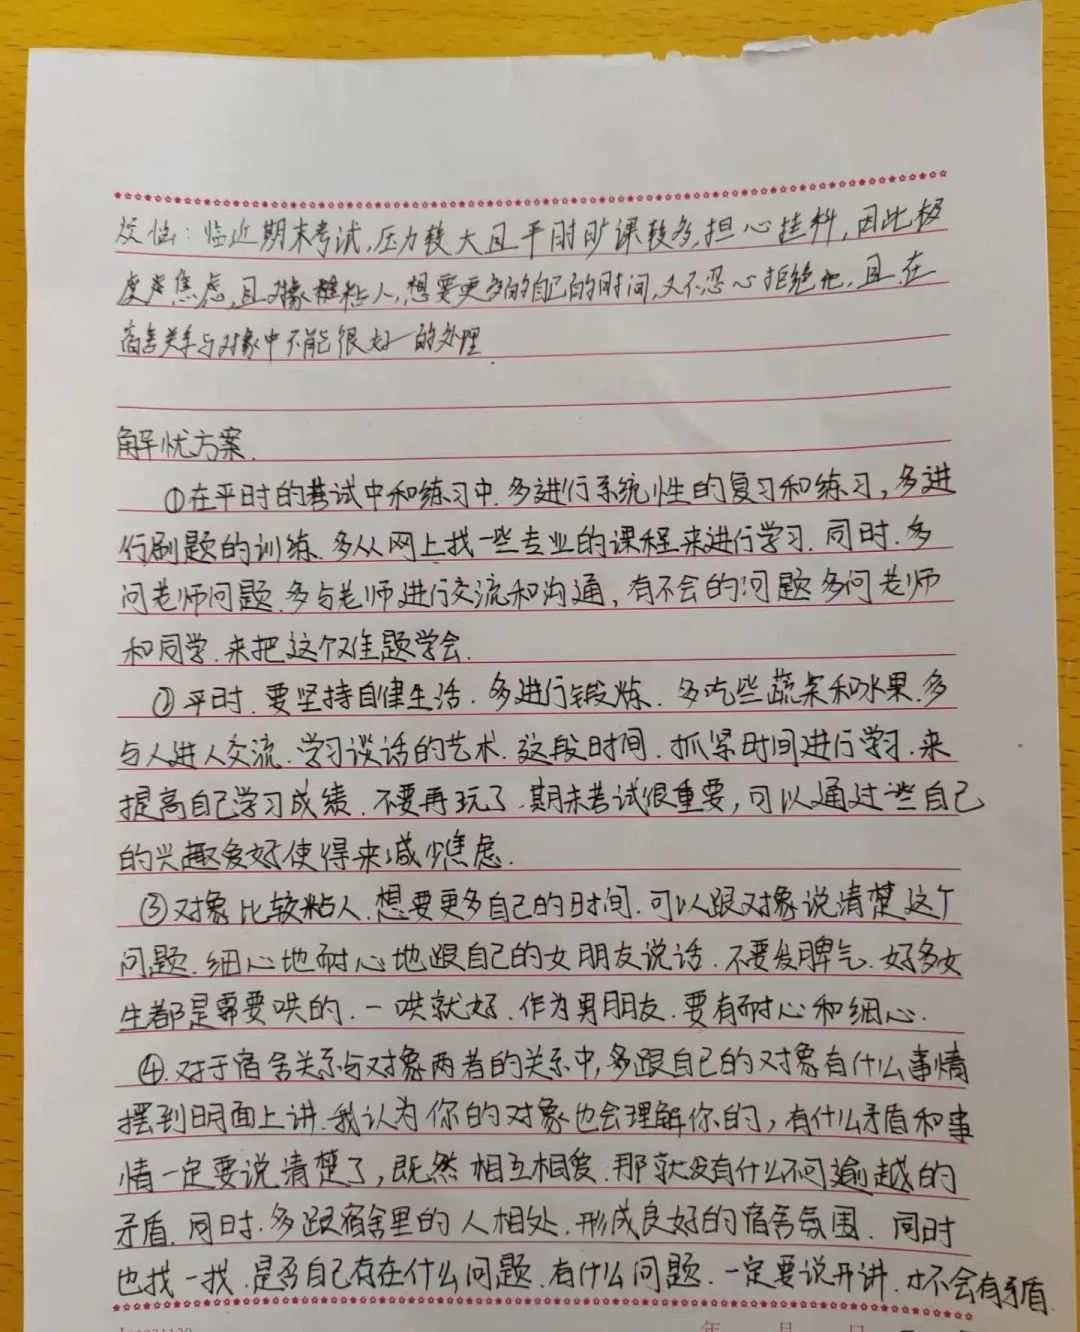 烦恼：临近期末考试，压力较大且平时旷课较多，担心挂科，因此极
度焦虑，且对象粘人，想要更多的自己的时间，又不忍心拒绝他，且在
宿舍关系与对象中不能很好的处理
解忧方案.
①在平时的考试中和练习中.多进行系统性的复习和练习，多进
行刷题的训练、多从网上找一些专业的课程来进行学习.同时.多
问老师问题.多与老师进行交流和沟通，有不会的问题多问老师
和同学.来把这个难题学会.
②平时.要坚持自律生活.多进行锻炼.多吃些蔬菜和水果.多
与人进人交流.学习谈话的艺术.这段时间.抓紧时间进行学习.来
提高自己学习成绩.不要再玩了.期末考试很重要，可以通过些自己
的兴趣爱好使得来减少焦虑.
③对象比较粘人.想要更多自己的时间.可以跟对象说清楚这个
问题.细心地耐心地跟自己的女朋友说话.不要发脾气.好多女
生都是需要哄的.一哄就好.作为男朋友.要有耐心和细心.
④.对于宿舍关系与对象两者的关系中，多跟自己的对象有什么事情
摆到明面上讲.我认为你的对象也会理解你的，有什么矛盾和事
情一定要说清楚了，既然相互相爱.那就没有什么不可逾越的
矛盾.同时.多跟宿舍里的人相处.形成良好的宿舍氛围.同时
也找一找.是否自己存在什么问题.有什么问题.一定要说开讲.才不会有矛盾.
年 月 日